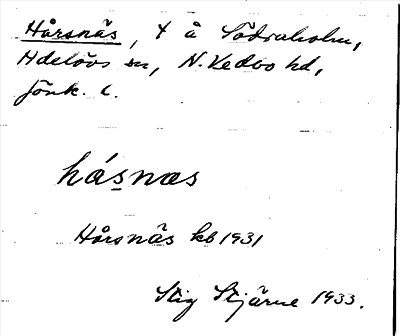 Hårsnäs, † å Södraholm,
Hdelövs sn, N. Vedbo hd,
Jönk. l.
hásnas
Hårsnäs kb 1931
Stig Stjärne 1933.